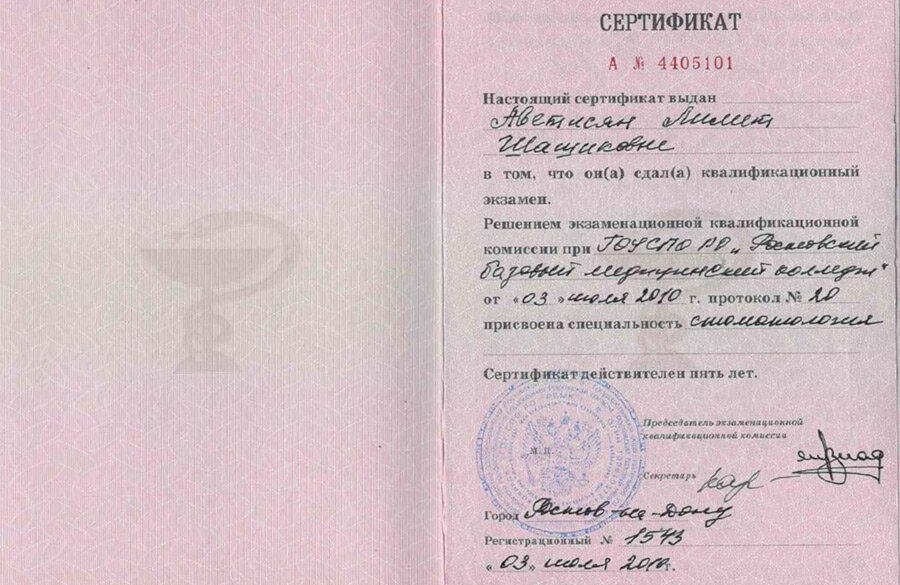 СЕРТИФИКАТ
А № 4405101
Настоящий сертификат выдан
Аветисян Лилит
Шащиковне
в том, что он(а) сдал(а) квалификационный
экзамен.
Решением экзаменационной квалификационной
комиссии при ГОУСПО РО „Ростовский
базовый медицинский колледж"
от «03» июля 2010 г. протокол № 20
присвоена специальность стоматология
Сертификат действителен пять лет.
Председатель экзаменационной
квалификационной комиссии
М.П.
Секретарь
Город Ростов-на-Дону
Регистрационный № 1543
«03» июля 2010г.